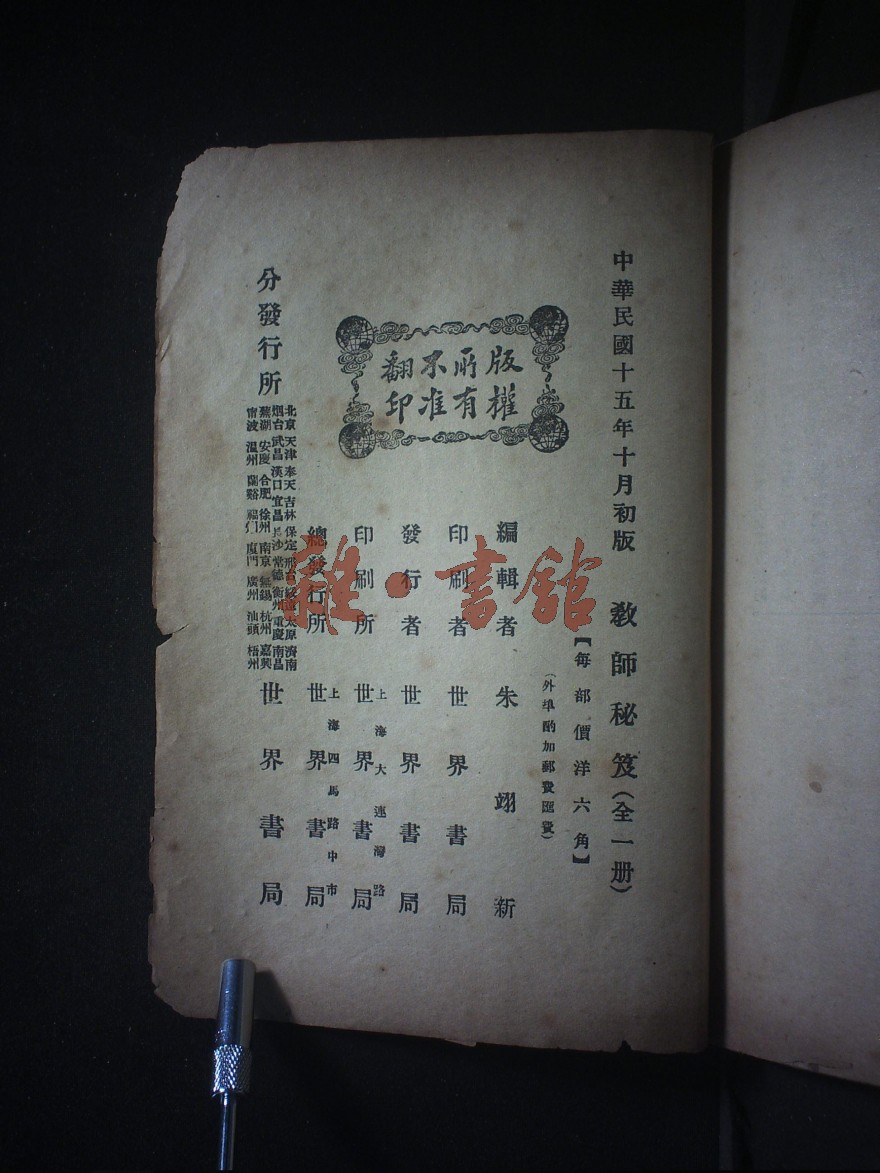 中華民國十五年十月初版
教師秘笈(全一册)
【每部價洋六角】
(外埠酌加郵費匯費)
版權所有
不准翻印
編輯者 朱翊新
印刷者 世界書局
發行者 世界書局
印刷所 上海大連灣路 世界書局
總發行所 上海四馬路中市 世界書局
分發行所
北京 天津 奉天 吉林 保定 邢台 綏遠 太原 濟南
烟台 武昌 漢口 宜昌 長沙 常德 衡州 重慶 南昌
蕪湖 安慶 合肥 徐州 南京 無錫 杭州 嘉興
甯波 溫州 蘭谿 福州 廈門 廣州 汕頭 梧州
世界書局
雜·書館